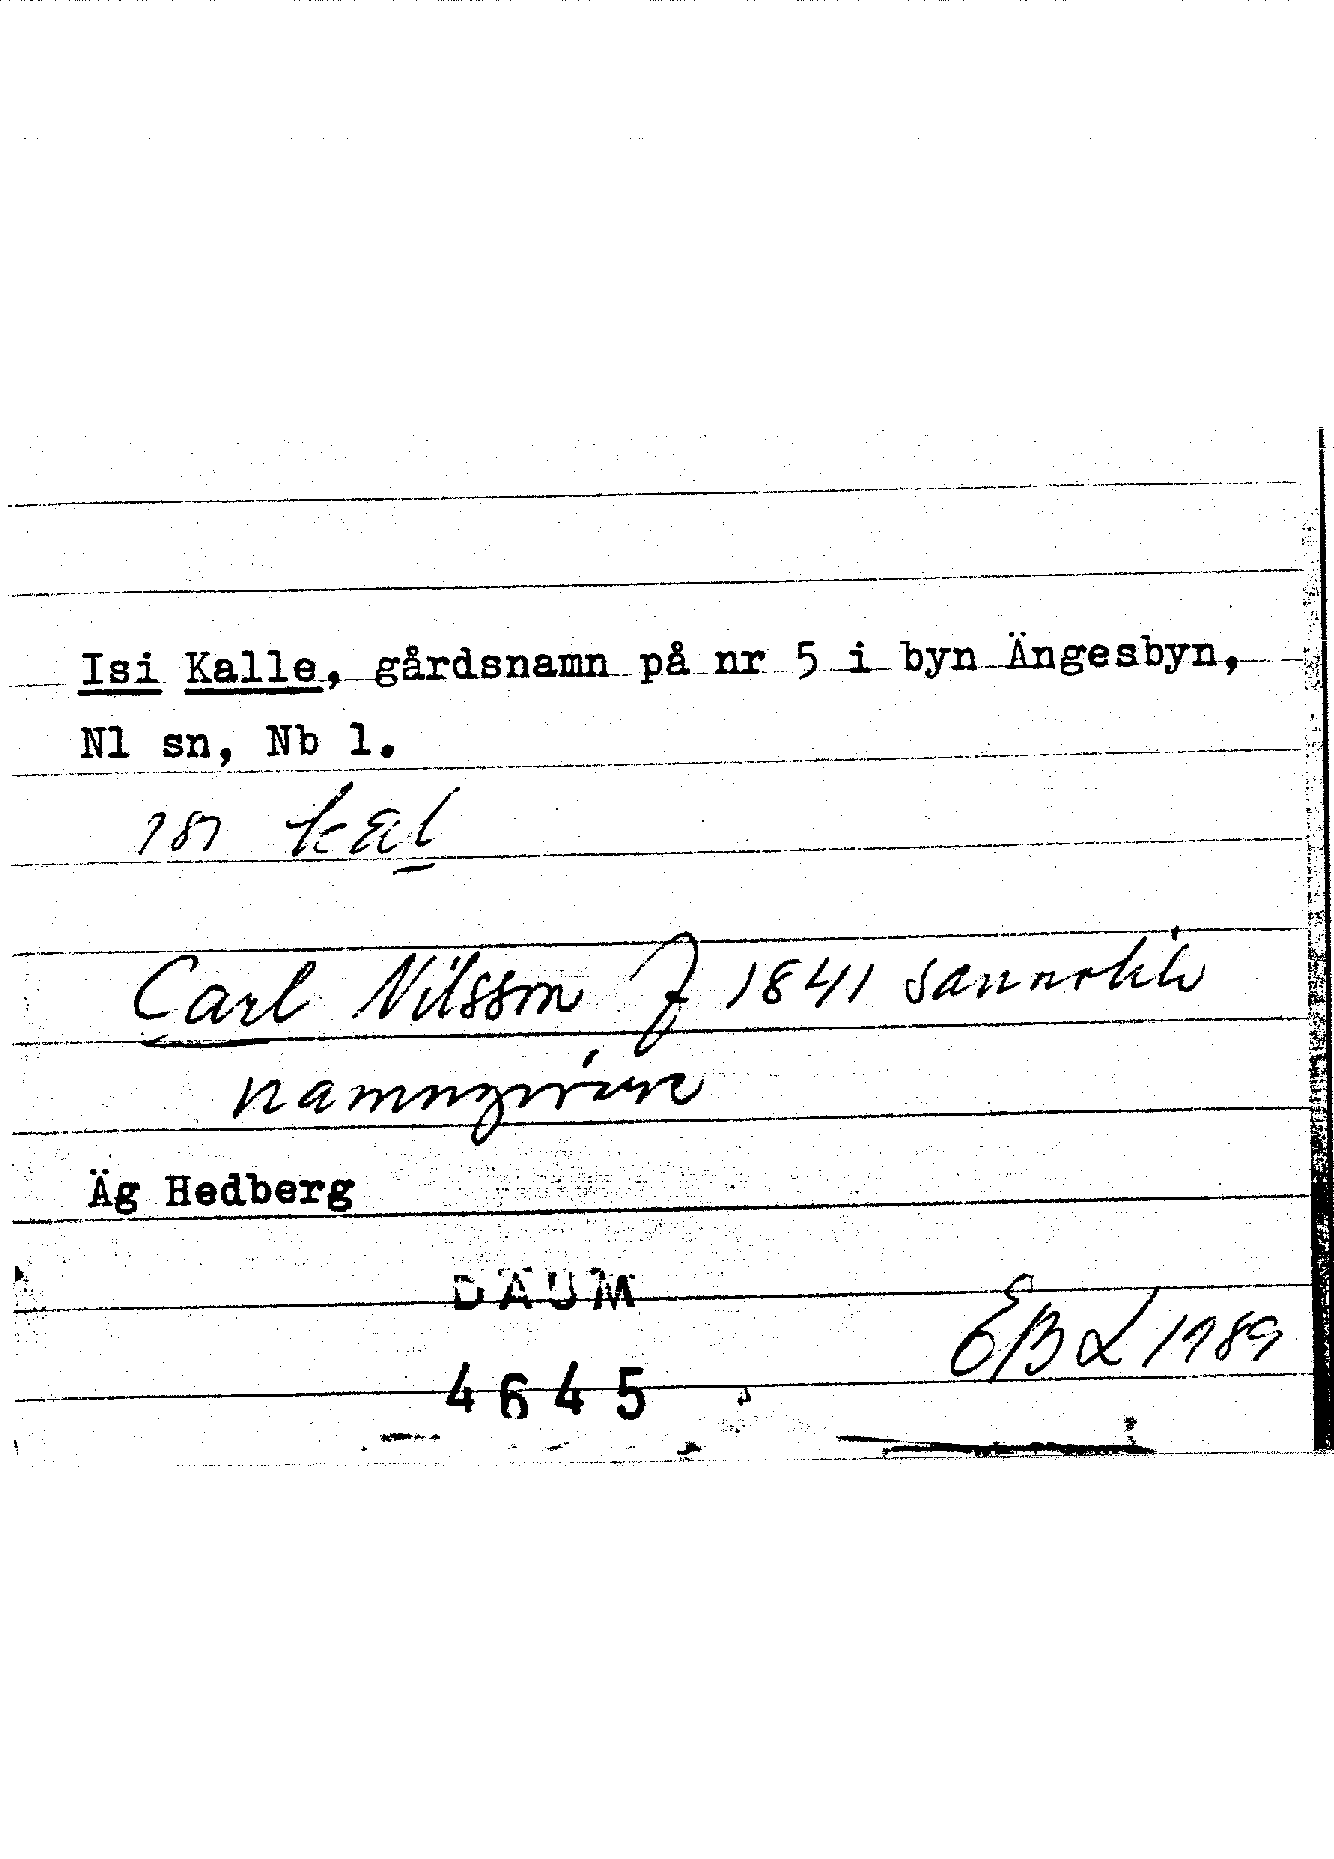 Isi Kalle, gårdsnamn på nr 5 i byn Ängesbyn,
Nl sn, Nb l.
ısı kæl
Carl Nilsson f 1841 sannolik
namngivare
Äg Hedberg
DAUM
4645
EBL 1989